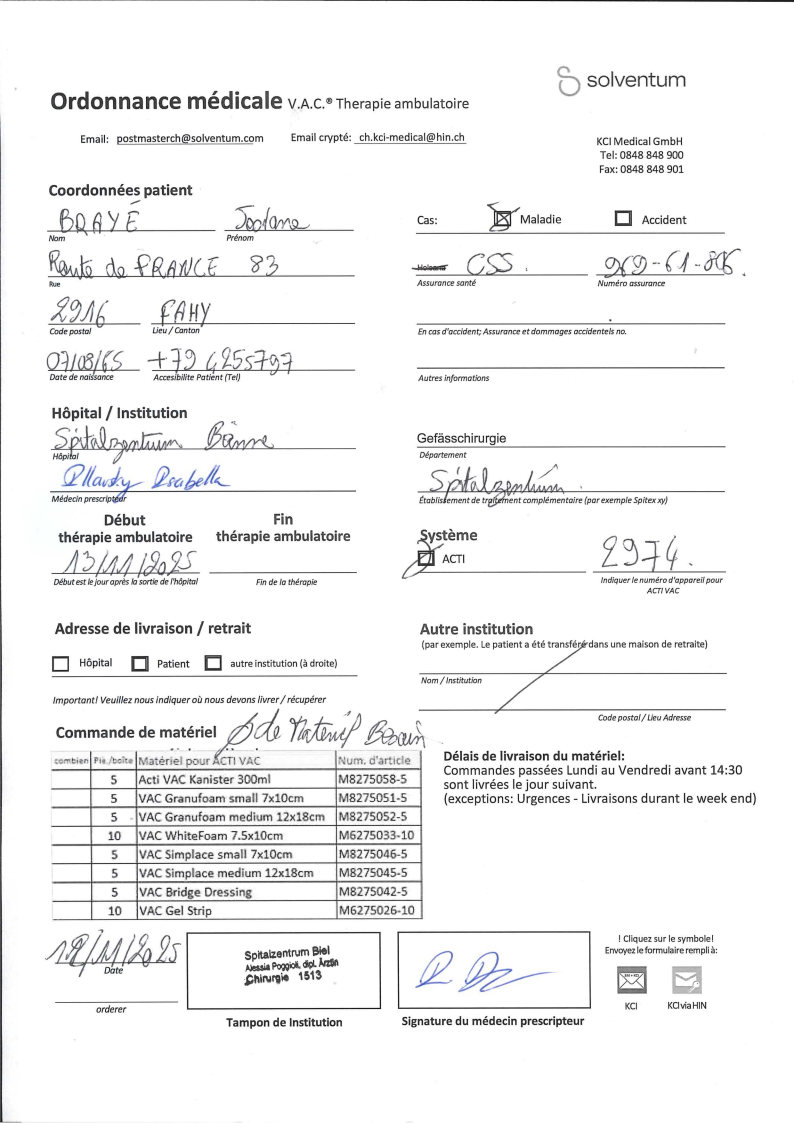 solventum
Ordonnance médicale V.A.C.® Therapie ambulatoire
Email: postmasterch@solventum.com Email crypté: ch.kci-medical@hin.ch
KCI Medical GmbH
Tel: 0848 848 900
Fax: 0848 848 901
Coordonnées patient
BRAYÉ
Nom Prénom
Cas: Maladie Accident
Route de FRANCE 83
Rue
CSS
Assurance santé Numéro assurance
2916 FAHY
Code postal Lieu / Canton
En cas d'accident; Assurance et dommages accidentels no.
07/08/65 +79 4255797
Date de naissance Accesibilite Patient (Tel)
Autres informations
Hôpital / Institution
Spitalzentrum Bienne
Hôpital
Gefässchirurgie
Département
Médecin prescripteur
Spitalzentrum
Établissement de traitement complémentaire (par exemple Spitex xy)
Début
thérapie ambulatoire
Fin
thérapie ambulatoire
13/11/2025
Début est le jour après la sortie de l'hôpital Fin de la thérapie
Système
ACTI
2974.
Indiquer le numéro d'appareil pour
ACTI VAC
Adresse de livraison / retrait
Hôpital Patient autre institution (à droite)
Important! Veuillez nous indiquer où nous devons livrer / récupérer
Autre institution
(par exemple. Le patient a été transféré dans une maison de retraite)
Nom / Institution
Code postal / Lieu Adresse
Commande de matériel
combien Piè./boîte Matériel pour ACTI VAC Num. d'article
5 Acti VAC Kanister 300ml M8275058-5
5 VAC Granufoam small 7x10cm M8275051-5
5 VAC Granufoam medium 12x18cm M8275052-5
10 VAC WhiteFoam 7.5x10cm M6275033-10
5 VAC Simplace small 7x10cm M8275046-5
5 VAC Simplace medium 12x18cm M8275045-5
5 VAC Bridge Dressing M8275042-5
10 VAC Gel Strip M6275026-10
Délais de livraison du matériel:
Commandes passées Lundi au Vendredi avant 14:30
sont livrées le jour suivant.
(exceptions: Urgences - Livraisons durant le week end)
Date
orderer
Spitalzentrum Biel
Alessia Poggioli, dipl. Ärztin
Chirurgie 1513
Tampon de Institution
Signature du médecin prescripteur
! Cliquez sur le symbole!
Envoyez le formulaire rempli à:
KCI KCI via HIN